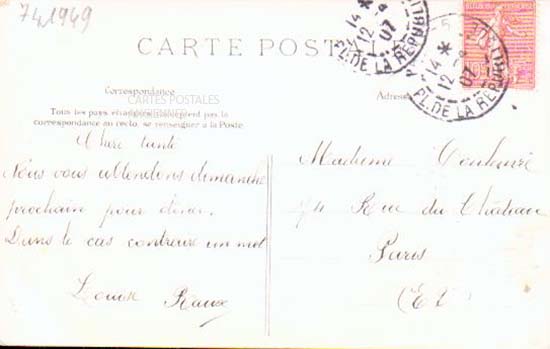 741949
CARTE POSTALE
Correspondance
Adresse
CARTES POSTALES
Tous les pays étrangers n'acceptent pas la
correspondance au recto, se renseigner à la Poste
Chère tante
Nous vous attendons dimanche
prochain pour dîner.
Dans le cas contraire un mot
Louise Raux
Madame
74 Rue du Château
Paris
PL. DE LA REPUBLI
14 *
12
07
PL. DE LA REPUBLI
14 *
12
07